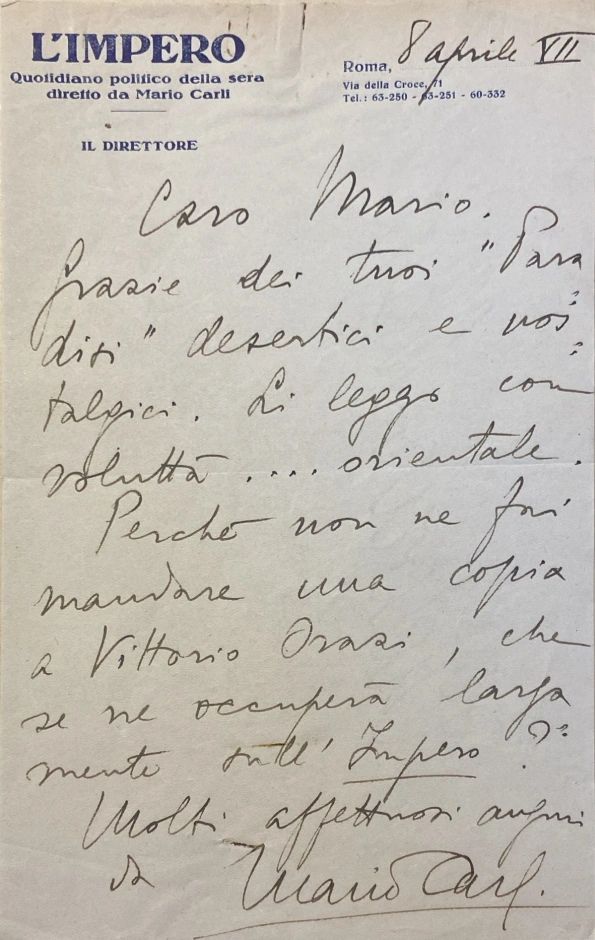 L'IMPERO
Quotidiano politico della sera
diretto da Mario Carli
IL DIRETTORE
Roma, 8 aprile VII
Via della Croce, 71
Tel.: 63-250 - 63-251 - 60-332
Caro Mario,
Grazie dei tuoi "Para
disi" desertici e nos
talgici. Li leggo con
voluttà .... orientale.
Perché non ne fai
mandare una copia
a Vittorio Orazi, che
se ne occuperà larga
mente sull'Impero?
Molti affettuosi auguri
da Mario Carli.